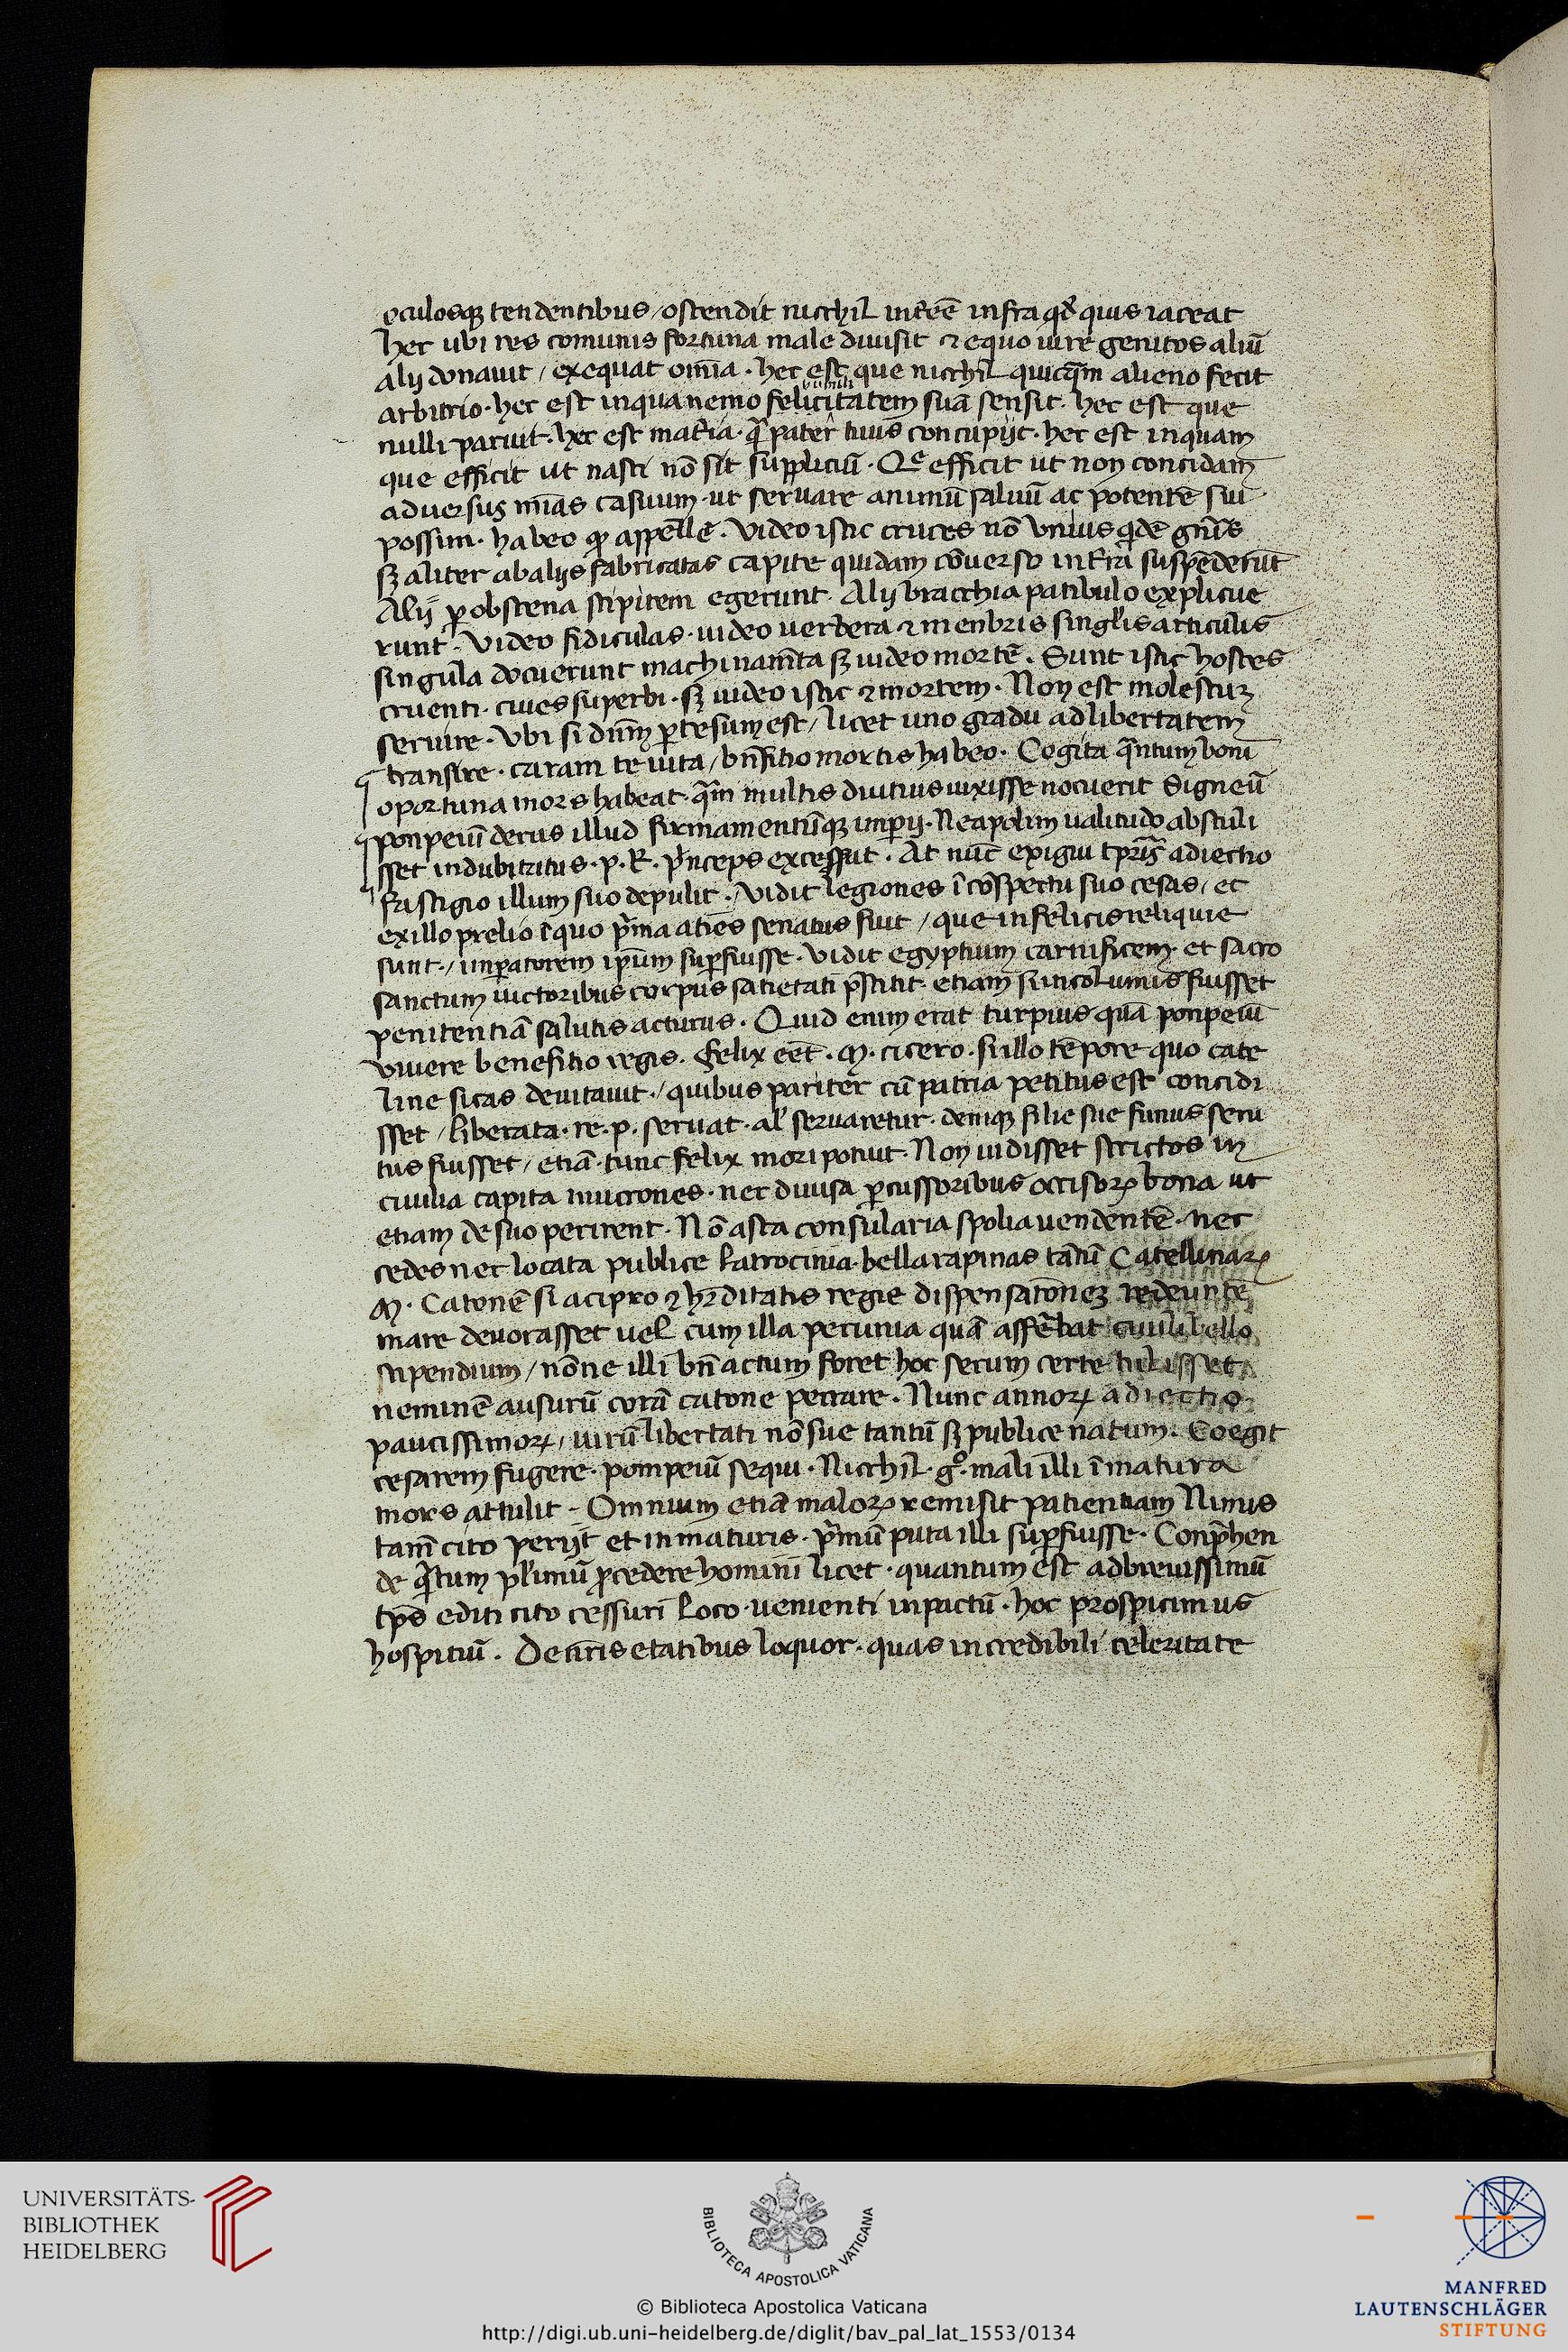 oculosqꝫ tendentibus / ostendit nicchil intēē infra qđ quis iaceat
hec ubi res comunis fortuna male diuisit ⁊ equo iure genitos aliū
alij donauit / exequat omīa · hec est que nicchil quicq̄m alieno fecit
arbitrio · hec est inqua nemo felicitatem suā sensit · hec est que
nulli paruit · hec est mar̄ia · q̄ pater tuus concupijt · hec est inquam
que efficit ut nasci nō sit suppliciū · Qe efficit ut non concidam
aduersus mīas casuum · ut seruare animū saluū ac potentē sui
possim · habeo qꝫ appellē · Video istic cruces nō vnius qdē gn̄is
sꝫ aliter abalijs fabricatas capite quidam cōuerso intr̄ā suspēderūt
Alij ꝑ obscena stipitem egerunt · Alij bracchia patibulo explicue
runt · Video fidiculas · uideo uerbera ⁊ menbris singl'is articulis
singula docuerunt machinam̄ta sꝫ uideo mortē · Sunt istic hostes
cruenti · ciues superbi · sꝫ uideo istic ⁊ mortem · Non est molestuꝫ
seruire · Vbi si dn̄m ꝑtesum est / licet uno gradu ad libertatem
transire · caram te uita / bn̄fitio mortis habeo · Cogita q̄ntum boni
oportuna mors habeat · q̄m multis diutius uixisse nocuerit Signeū
ponpeiū decus illud firmamentūqꝫ imꝑij · Neapolim ualitudo abstuli
sset indubitatus · p · R · pⁱnceps excesserat · At nūc exigui tꝑis adiectio
fastigio illum suo depulit · / Vidit legiones ī cōspectu suo cesas / et
exillo prelio ī quo pⁱma acies senatus fuit / que infelicis reliquie
sunt · / imꝑatorem ipsum suꝑfuisse · Vidit egyptium carnificem · et sacro
sanctum uictoribus corpus satietati p̄stitit · etiam si incolumis fuisset
penitentiā salutis acturus · Quid enim erat turpius quā ponpeiū
viuere benefitio regis · felix eēt · M · cicero · si illo tēpore quo cate
line sicas deuitauit · / quibus pariter cū patria petitus est concidi
sset / liberata · re · p · seruat · al' seruaretur · deniqꝫ filie sue funus secu
tus fuisset / etiā · tunc felix mori potuit · Non uidisset strictos in
ciuilia capita mucrones · nec diuisa ꝑcussoribus occisoꝝ bona ut
etiam de suo perirent · Nō asta consularia spolia uendentē · nec
cedes nec locata publice latrocinia · bella rapinas tātū Catellinaꝝ
M · Catonē si acipro ⁊ hꝫditatis regie dispensatōneꝫ redeuntē
mare deuorasset uel cum illa pecunia quā affēbat ciuili bello
stipendium / nōne illi bn̄ actum foret hoc secum certe tulisset
neminē ausurū corā catone peccare · Nunc annoꝝ adiectio
paucissimoꝝ / uirū libertati nō sue tantū sꝫ publice natum · Coegit
cesarem fugere · pompeiū sequi · Nicchil · gº · mali illi īmatura
mors attulit - Omnium etiā maloꝝ remisit patientiam Nimus
tam̄ cito perijt et inmaturis · pⁱmū puta illi suꝑfuisse · Conp̄hen
de q̄tum pl'imū ꝓcedere homini licet · quantum est adbreuissimū
tp̄s editi cito cessuri loco · uenienti inpactū · hoc prospicimus
hospitiū · De nr̄is etatibus loquor · quas incredibili celeritate
UNIVERSITÄTS-
BIBLIOTHEK
HEIDELBERG
BIBLIOTECA APOSTOLICA VATICANA
© Biblioteca Apostolica Vaticana
http://digi.ub.uni-heidelberg.de/diglit/bav_pal_lat_1553/0134
MANFRED
LAUTENSCHLÄGER
STIFTUNG